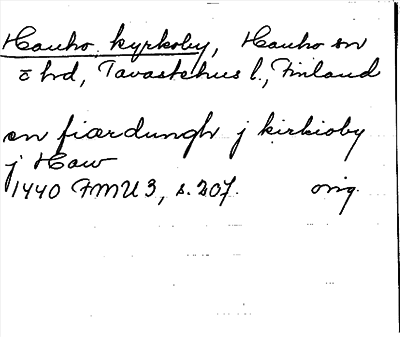 Hauho kyrkoby, Hauho sn
o hd, Tavastehus l., Finland
en fiærdungh j kirkioby
j Haw
1440 FMU 3, s. 207. orig.